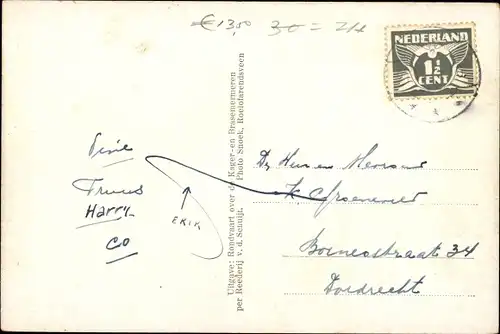 € 13,50 30 = 24
NEDERLAND
1½
CENT
Truus
Harry
Co
ERIK
Uitgave: Rondvaart over de Kager-en Brasemermeren
per Reederij v. d. Schuijt. Photo Snoek, Roelofarendsveen
De Heer en Mevrouw
K Groeneveld
Borneostraat 34
Dordrecht